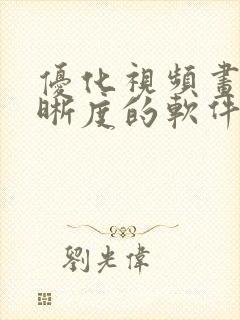 優化視頻畫
晰度的軟件
劉光偉